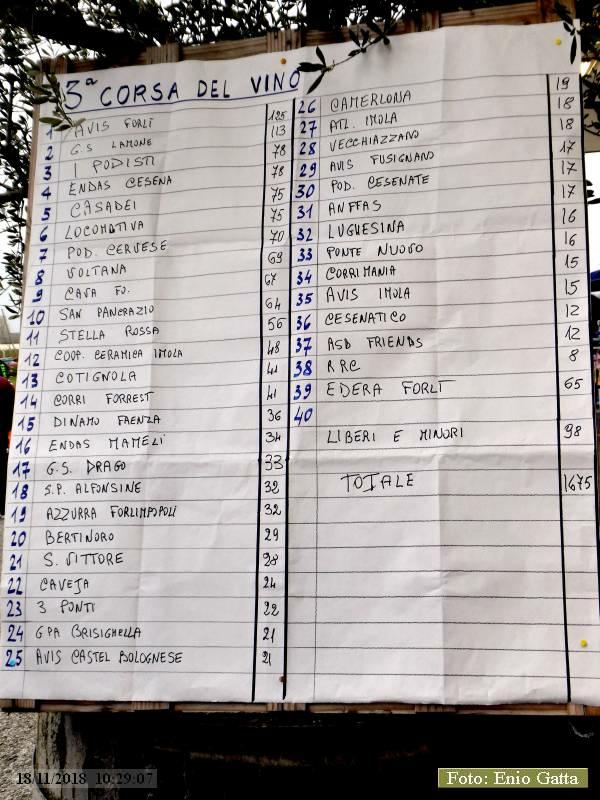 3ª CORSA DEL VINO
1 AVIS FORLÌ 125
2 G.S LAMONE 113
3 I PODISTI 78
4 ENDAS CESENA 78
5 CASADEI 75
6 LOCOMOTIVA 75
7 POD. CERVESE 70
8 VOLTANA 69
9 CAVA FO. 67
10 SAN PANCRAZIO 64
11 STELLA ROSSA 56
12 COOP. CERAMICA IMOLA 48
13 COTIGNOLA 41
14 CORRI FORREST 41
15 DINAMO FAENZA 36
16 ENDAS MAMELI 34
17 G.S. DRAGO 33
18 S.P. ALFONSINE 32
19 AZZURRA FORLIMPOPOLI 32
20 BERTINORO 29
21 S. VITTORE 28
22 CAVEJA 24
23 3 PONTI 22
24 GPA BRISIGHELLA 21
25 AVIS CASTEL BOLOGNESE 21
26 CAMERLONA 19
27 ATL. IMOLA 18
28 VECCHIAZZANO 18
29 AVIS FUSIGNANO 17
30 POD. CESENATE 17
31 ANFFAS 17
32 LUGHESINA 16
33 PONTE NUOVO 16
34 CORRIMANIA 15
35 AVIS IMOLA 15
36 CESENATICO 12
37 ASD FRIENDS 12
38 RRC 8
39 EDERA FORLÌ 65
40
LIBERI E MINORI 98
TOTALE 1675
18/11/2018 10:29:07
Foto: Enio Gatta